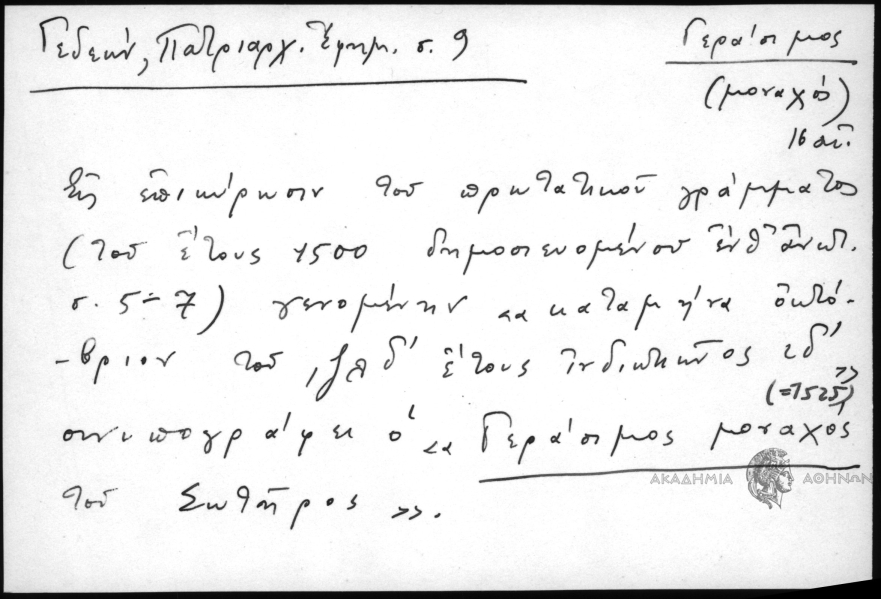 Γεδεών, Πατριαρχ. Ἐφημ. σ. 9
Γεράσιμος
(μοναχός)
16 αἰ.
Εἰς ἐπικύρωσιν τοῦ πρωτατικοῦ γράμματος
(τοῦ ἔτους 1500 δημοσιευομένου ἔνθ' ἀνωτ.
σ. 5-7) γενομένην «κατὰ μῆνα ὀκτώ-
-βριον τοῦ ,ζλδ' ἔτους ἰνδικτιῶνος ιδ'»
(=1525)
συνυπογράφει ὁ «Γεράσιμος μοναχὸς
τοῦ Σωτῆρος».
ΑΚΑΔΗΜΙΑ ΑΘΗΝΩΝ